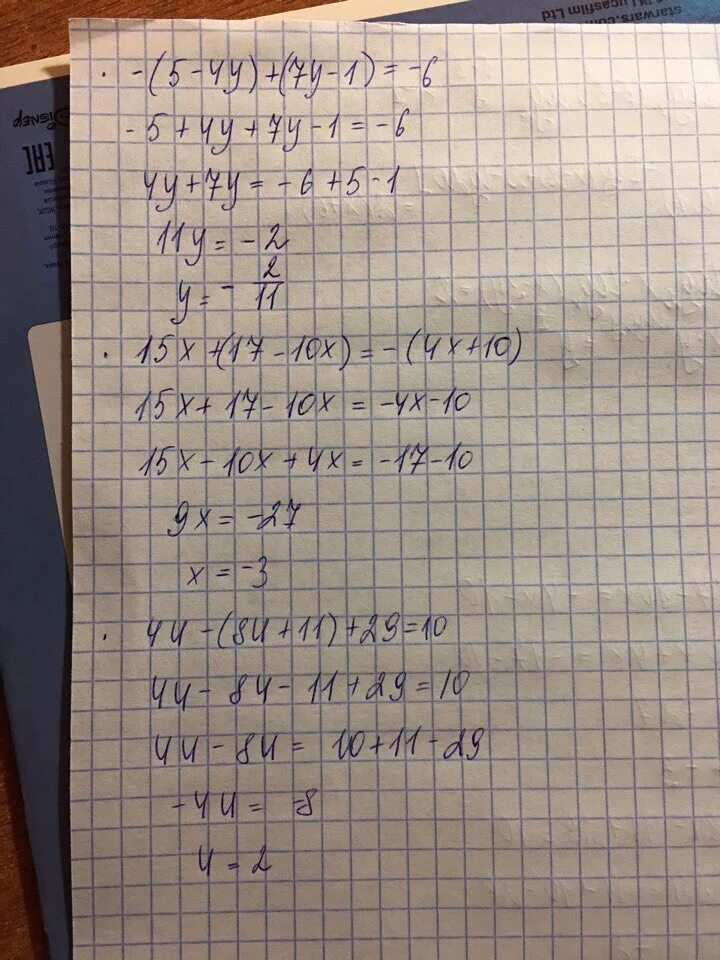 starwars.com
Lucasfilm Ltd
Disney
EAC
· -(5-4y)+(7y-1)=-6
-5+4y+7y-1=-6
4y+7y=-6+5-1
11y=-2
y=-2/11
· 15x+(17-10x)=-(4x+10)
15x+17-10x=-4x-10
15x-10x+4x=-17-10
9x=-27
x=-3
· 4u-(8u+11)+29=10
4u-8u-11+29=10
4u-8u=10+11-29
-4u=-8
u=2